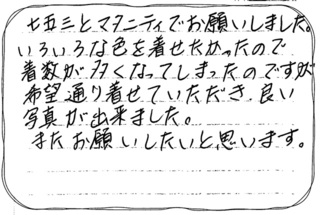 七五三とマタニティでお願いしました。
いろいろな色を着せたかったので
着数が多くなってしまったのですが
希望通り着せていただき、良い
写真が出来ました。
またお願いしたいと思います。